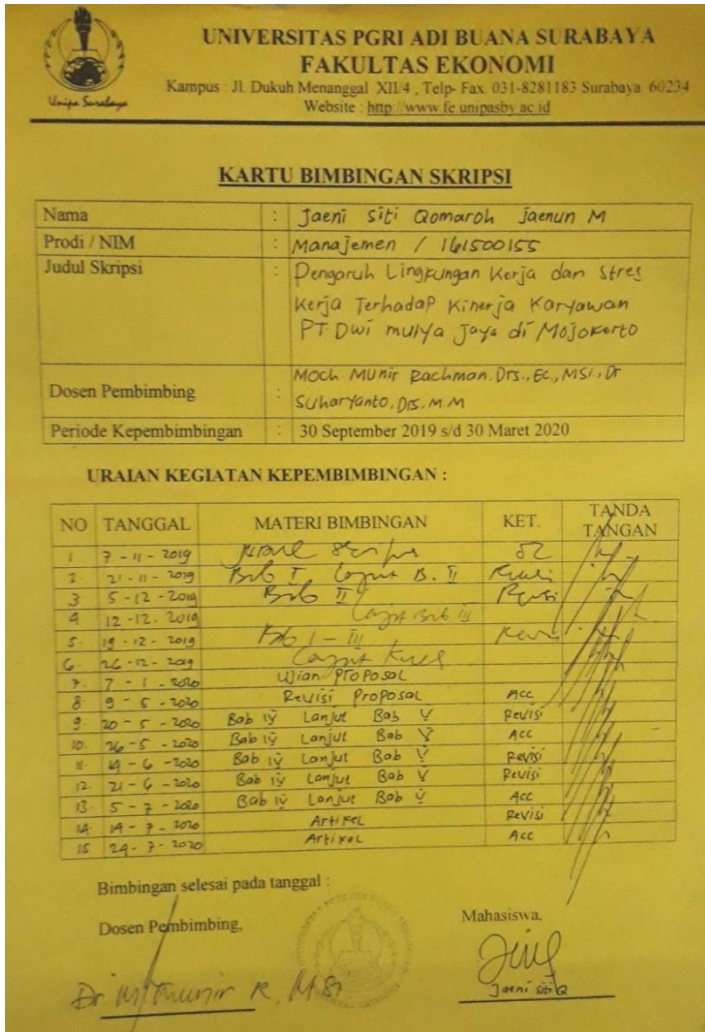 Unipa Surabaya
UNIVERSITAS PGRI ADI BUANA SURABAYA
FAKULTAS EKONOMI
Kampus : Jl. Dukuh Menanggal XII/4 , Telp- Fax. 031-8281183 Surabaya 60234
Website : http://www.fe.unipasby.ac.id
KARTU BIMBINGAN SKRIPSI
Nama : Jaeni Siti Qomaroh Jaenun M
Prodi / NIM : Manajemen / 161500155
Judul Skripsi : Pengaruh Lingkungan Kerja dan Stres
Kerja Terhadap Kinerja Karyawan
PT Dwi mulya Jaya di Mojokerto
Dosen Pembimbing : Moch. Munir Rachman. Drs., Ec., MSi., Dr
Suharyanto, Drs, M.M
Periode Kepembimbingan : 30 September 2019 s/d 30 Maret 2020
URAIAN KEGIATAN KEPEMBIMBINGAN :
NO TANGGAL MATERI BIMBINGAN KET. TANDA TANGAN
1 7 - 11 - 2019
2 21 - 11 - 2019 Bab I B. II Revisi
3 5 - 12 - 2019 Bab II Revisi
4 12 - 12. 2019 Bab III
5. 19 - 12 - 2019 Bab I - III Revisi
6 26 - 12 - 2019
7. 7 - 1 - 2020 Ujian Proposal
8 9 - 5 - 2020 Revisi Proposal Acc
9. 20 - 5 - 2020 Bab IV Lanjut Bab V Revisi
10. 26 - 5 - 2020 Bab IV Lanjut Bab V Acc
11. 14 - 6 - 2020 Bab IV Lanjut Bab V Revisi
12. 21 - 6 - 2020 Bab IV Lanjut Bab V Revisi
13. 5 - 7 - 2020 Bab IV Lanjut Bab V Acc
14. 14 - 7 - 2020 Artikel Revisi
15 24 - 7 - 2020 Artikel Acc
Bimbingan selesai pada tanggal :
Dosen Pembimbing,
Mahasiswa,
Dr. M. Munir R, M.Si
Jaeni Siti Q